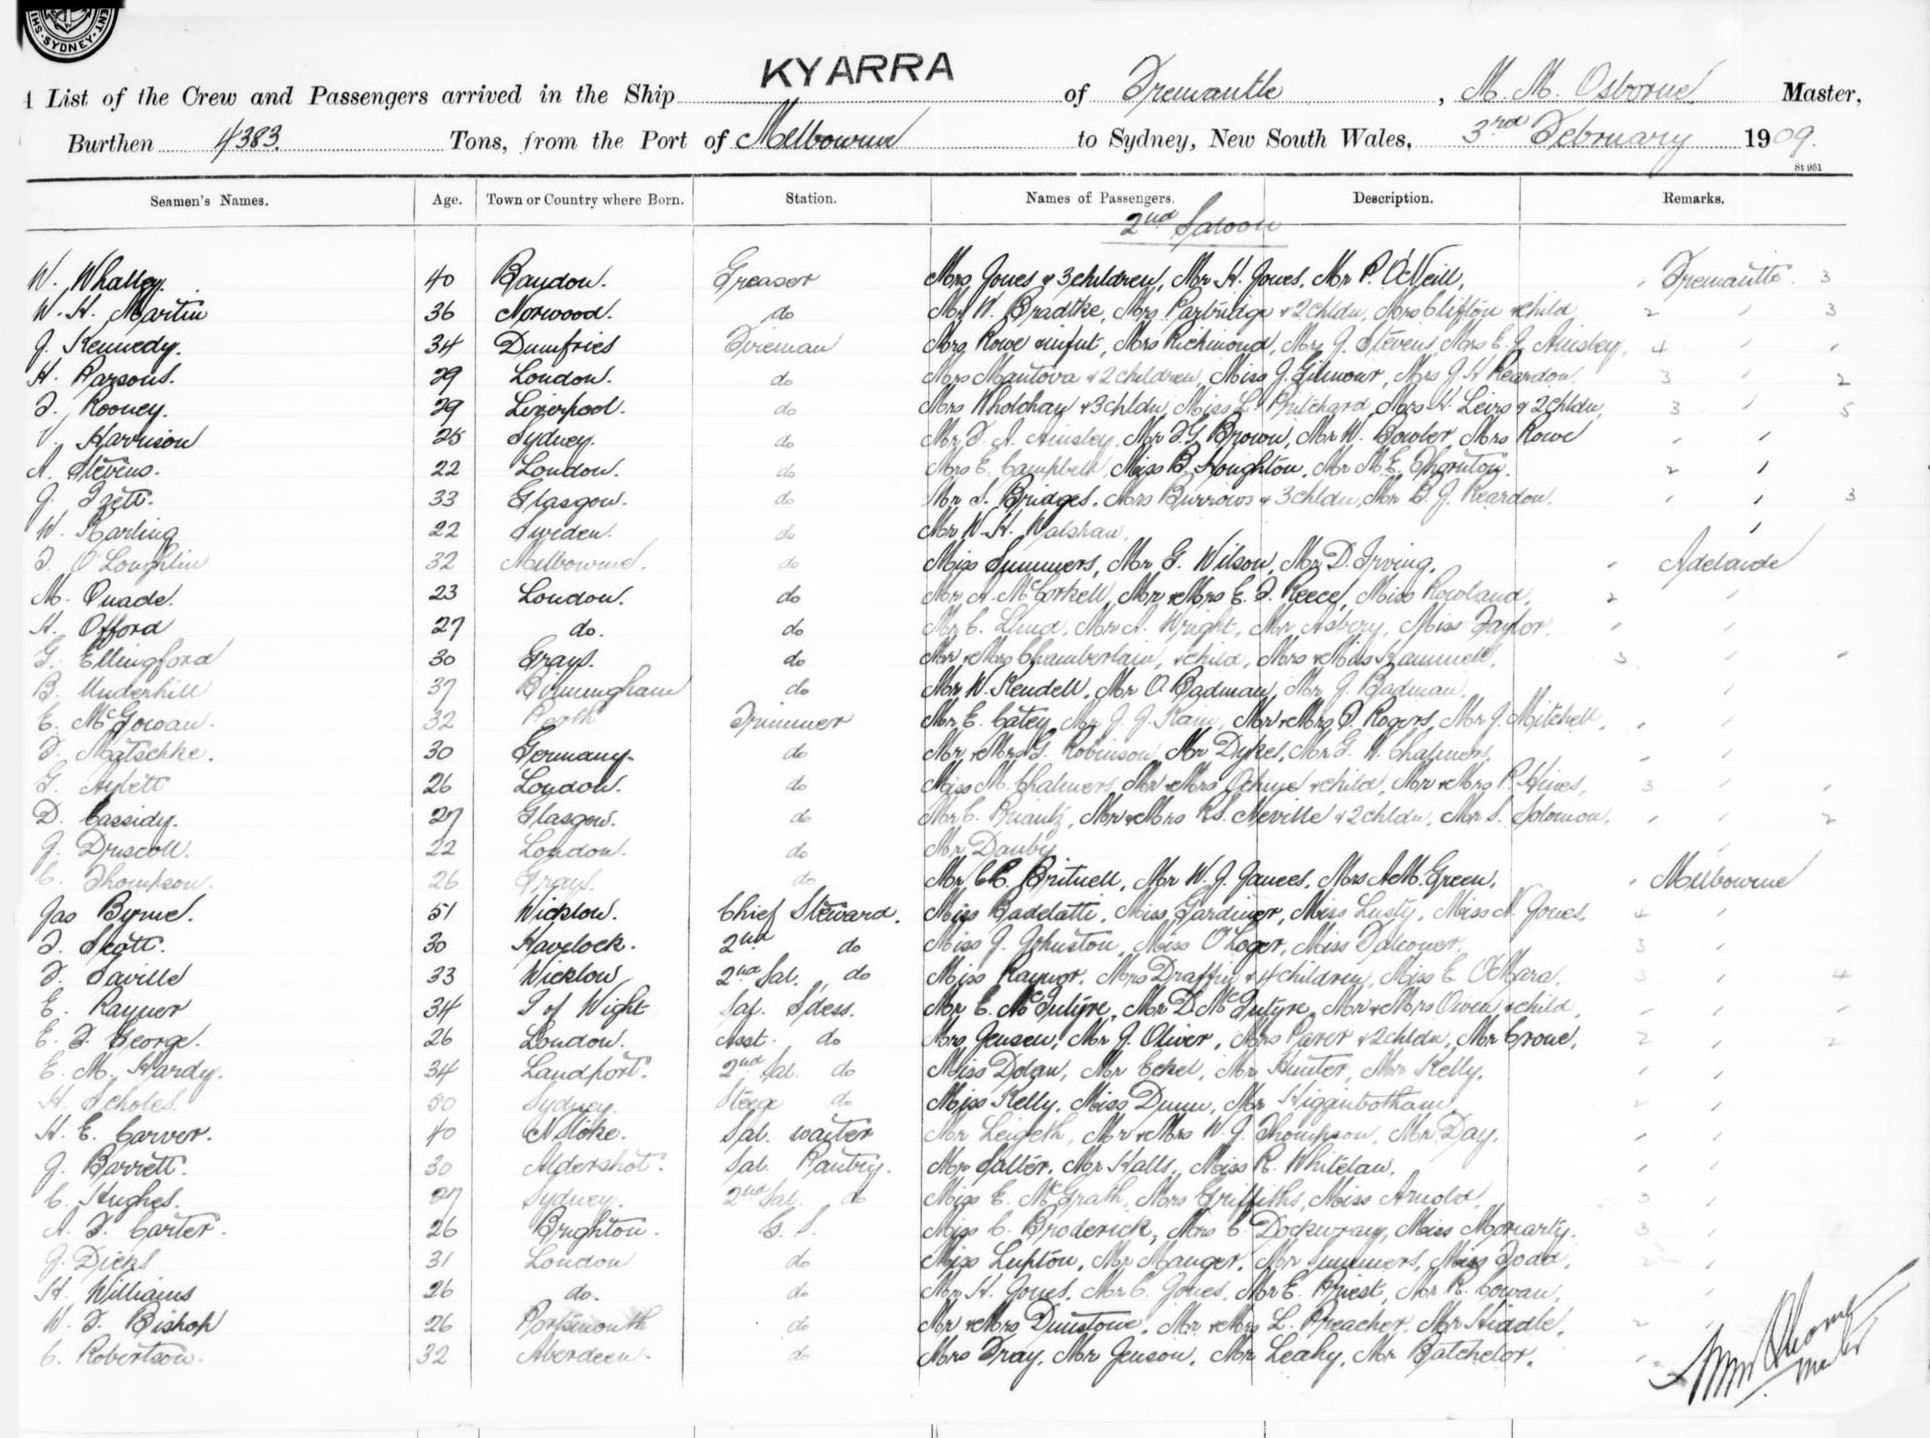 SYDNEY
KYARRA
A List of the Crew and Passengers arrived in the Ship KYARRA of Fremantle, M. M. Osborne Master,
Burthen 4383 Tons, from the Port of Melbourne to Sydney, New South Wales, 3rd February 1909.
St 951
Seamen's Names. Age. Town or Country where Born. Station. Names of Passengers. Description. Remarks.
2nd Saloon
W. Whalley. 40 Bandon. Greaser Mrs Jones & 3 children, Mr H. Jones, Mr P. O'Neill, Fremantle 3
W. H. Martin 36 Norwood. do Mr W. Bradtke, Mrs Partridge & 2 chldn, Mrs Clifton & child 2 " 3
J. Kennedy. 34 Dumfries Fireman Mrs Rowe & infnt, Mrs Richmond, Mr J. Stevens, Mrs E. J. Ainsley, 4 " "
H. Parsons. 29 London. do Mrs Mantova & 2 children, Miss J. Gilmour, Mrs J. H. Reardon. 3 " 2
F. Rooney. 29 Liverpool. do Mrs & 3 chldn, Miss L. Pritchard, Mrs H. & 2 chldn, 3 " 5
Harrison 25 Sydney. do Mr F. A. Ainsley, Mr F. G. Brown, Mr W. Bowler, Mrs Rowe " "
A. Stevens. 22 London. do Mrs E. Campbell, Miss B. Houghton, Mr M. E. Thornton. 2 "
J. Izett. 33 Glasgow. do Mr S. Bridges, Mrs Burrows & 3 chldn, Mr B. J. Reardon. " " 3
W. Karling 22 Sweden. do Mr W. H. Walshaw, "
F. O'Loughlin 32 Melbourne. do Miss Summers, Mr G. Wilson, Mr D. Irving. " Adelaide
M. Quade. 23 London. do Mr A. McCorkell, Mr & Mrs E. F. Reece, Miss Rowland, 2 "
H. Offord 27 do. do Mr C. Lund, Mr A. Wright, Mr Asbery, Miss Taylor. " "
G. Ellingford 30 Grays. do Mr & Mrs Chamberlain, & child, Mrs & Miss Kammell, 3 " "
B. Underhill 37 Birmingham do Mr W. Kendell, Mr O. Badman, Mr J. Badman. "
E. McGowan. 32 Perth Trimmer Mr E. Catey, Mr J. J. Kane, Mr & Mrs F. Rogers, Mr J. Mitchell, " "
F. Matschke. 30 Germany. do Mr & Mrs G. Robinson, Mr Dykes, Mr G. W. Chalmers, " "
G. Aylett 26 London. do Miss M. Chalmers, Mr & Mrs & child, Mr & Mrs P. Hines, 3 " "
D. Cassidy. 27 Glasgow. do Mr C. Kriantz, Mr & Mrs R. S. Neville & 2 chldn, Mr S. Solomon, " " 2
J. Driscoll. 22 London. do Mr Danby "
C. Thompson. 26 Grays. do Mr C. C. Britnell, Mr W. J. Jances, Mrs A. M. Green, " Melbourne
Jas Byrne. 51 Wicklow. Chief Steward. Miss Badelatti, Miss Gardiner, Miss Lusty, Miss N. Jones. 4 "
F. Scott. 30 Havelock. 2nd do Miss J. Johnston, Miss O'Loger, Miss Falconer, 3 "
F. Saville 33 Wicklow 2nd Sal. do Miss Raynor, Mrs Draffin & 4 children, Miss E. O'Mara. 3 " 4
E. Rayner 34 I of Wight Sal. S'dess. Mr C. McIntyre, Mr D. McIntyre, Mr & Mrs Owen & child, " " "
E. F. George. 26 London. Asst. do Mrs Jensen, Mr J. Oliver, Mrs Paver & 2 chldn, Mr Crone, 2 " 2
E. M. Hardy. 34 Landport. 2nd Sal. do Miss Dolan, Mr Eckel, Mr Hunter, Mr Kelly. " "
H. Scholes. 50 Sydney. Steege do Miss Kelly, Miss Dunn, Mr Higginbotham 2 "
H. E. Carver. 40 N Stoke. Sal. waiter Mr Leigeth, Mr & Mrs W. J. Thompson, Mr Day, " "
J. Barrett. 30 Aldershot. Sal. Pantry. Mr Salter, Mr Halls, Miss R. Whitelaw. " "
C. Hughes. 27 Sydney. 2nd Sal. do Miss E. McGrath, Mrs Griffiths, Miss Arnold. 3 "
A. F. Carter. 26 Brighton. G. S. Miss C. Broderick, Mrs C. Dockwray, Miss Moriarty. 3 "
J. Dicks 31 London do Miss Lupton, Mr Manger, Mr Summers, Miss Todd, 2 "
H. Williams 26 do. do Mr H. Jones, Mr C. Jones, Mr E. Priest, Mr R. Cowan, "
W. F. Bishop 26 Portsmouth do Mr & Mrs Dunstone, Mr & Mrs L. Preacher, Mr Hiddle, 2 "
C. Robertson. 32 Aberdeen. do Mrs Tray, Mr Jenson, Mr Leahy, Mr Batchelor. "